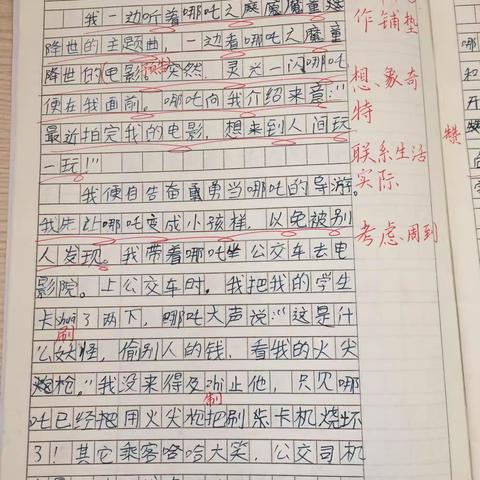 我一边听着哪吒之魔童
降世的主题曲，一边看哪吒之魔童
降世的电影预告突然，灵光一闪哪吒
便在我面前。哪吒向我介绍来意："
最近拍完我的电影，想来到人间玩
一玩！"
我便自告奋勇当哪吒的导游。
我先让哪吒变成小孩样，以免被别
人发现。我带着哪吒坐公交车去电
影院。上公交车时，我把我的学生
卡shua了两下，哪吒大声说："这是什
么妖怪，偷别人的钱，看我的火尖
枪。"我没来得及zhi止他，只见哪
吒已经把用火尖枪把刷卡机烧坏
了！其它乘客哈哈大笑，公交司机
刷
制
作铺垫
想象奇
特
联系生活
实际
考虑周到
赞
和
开